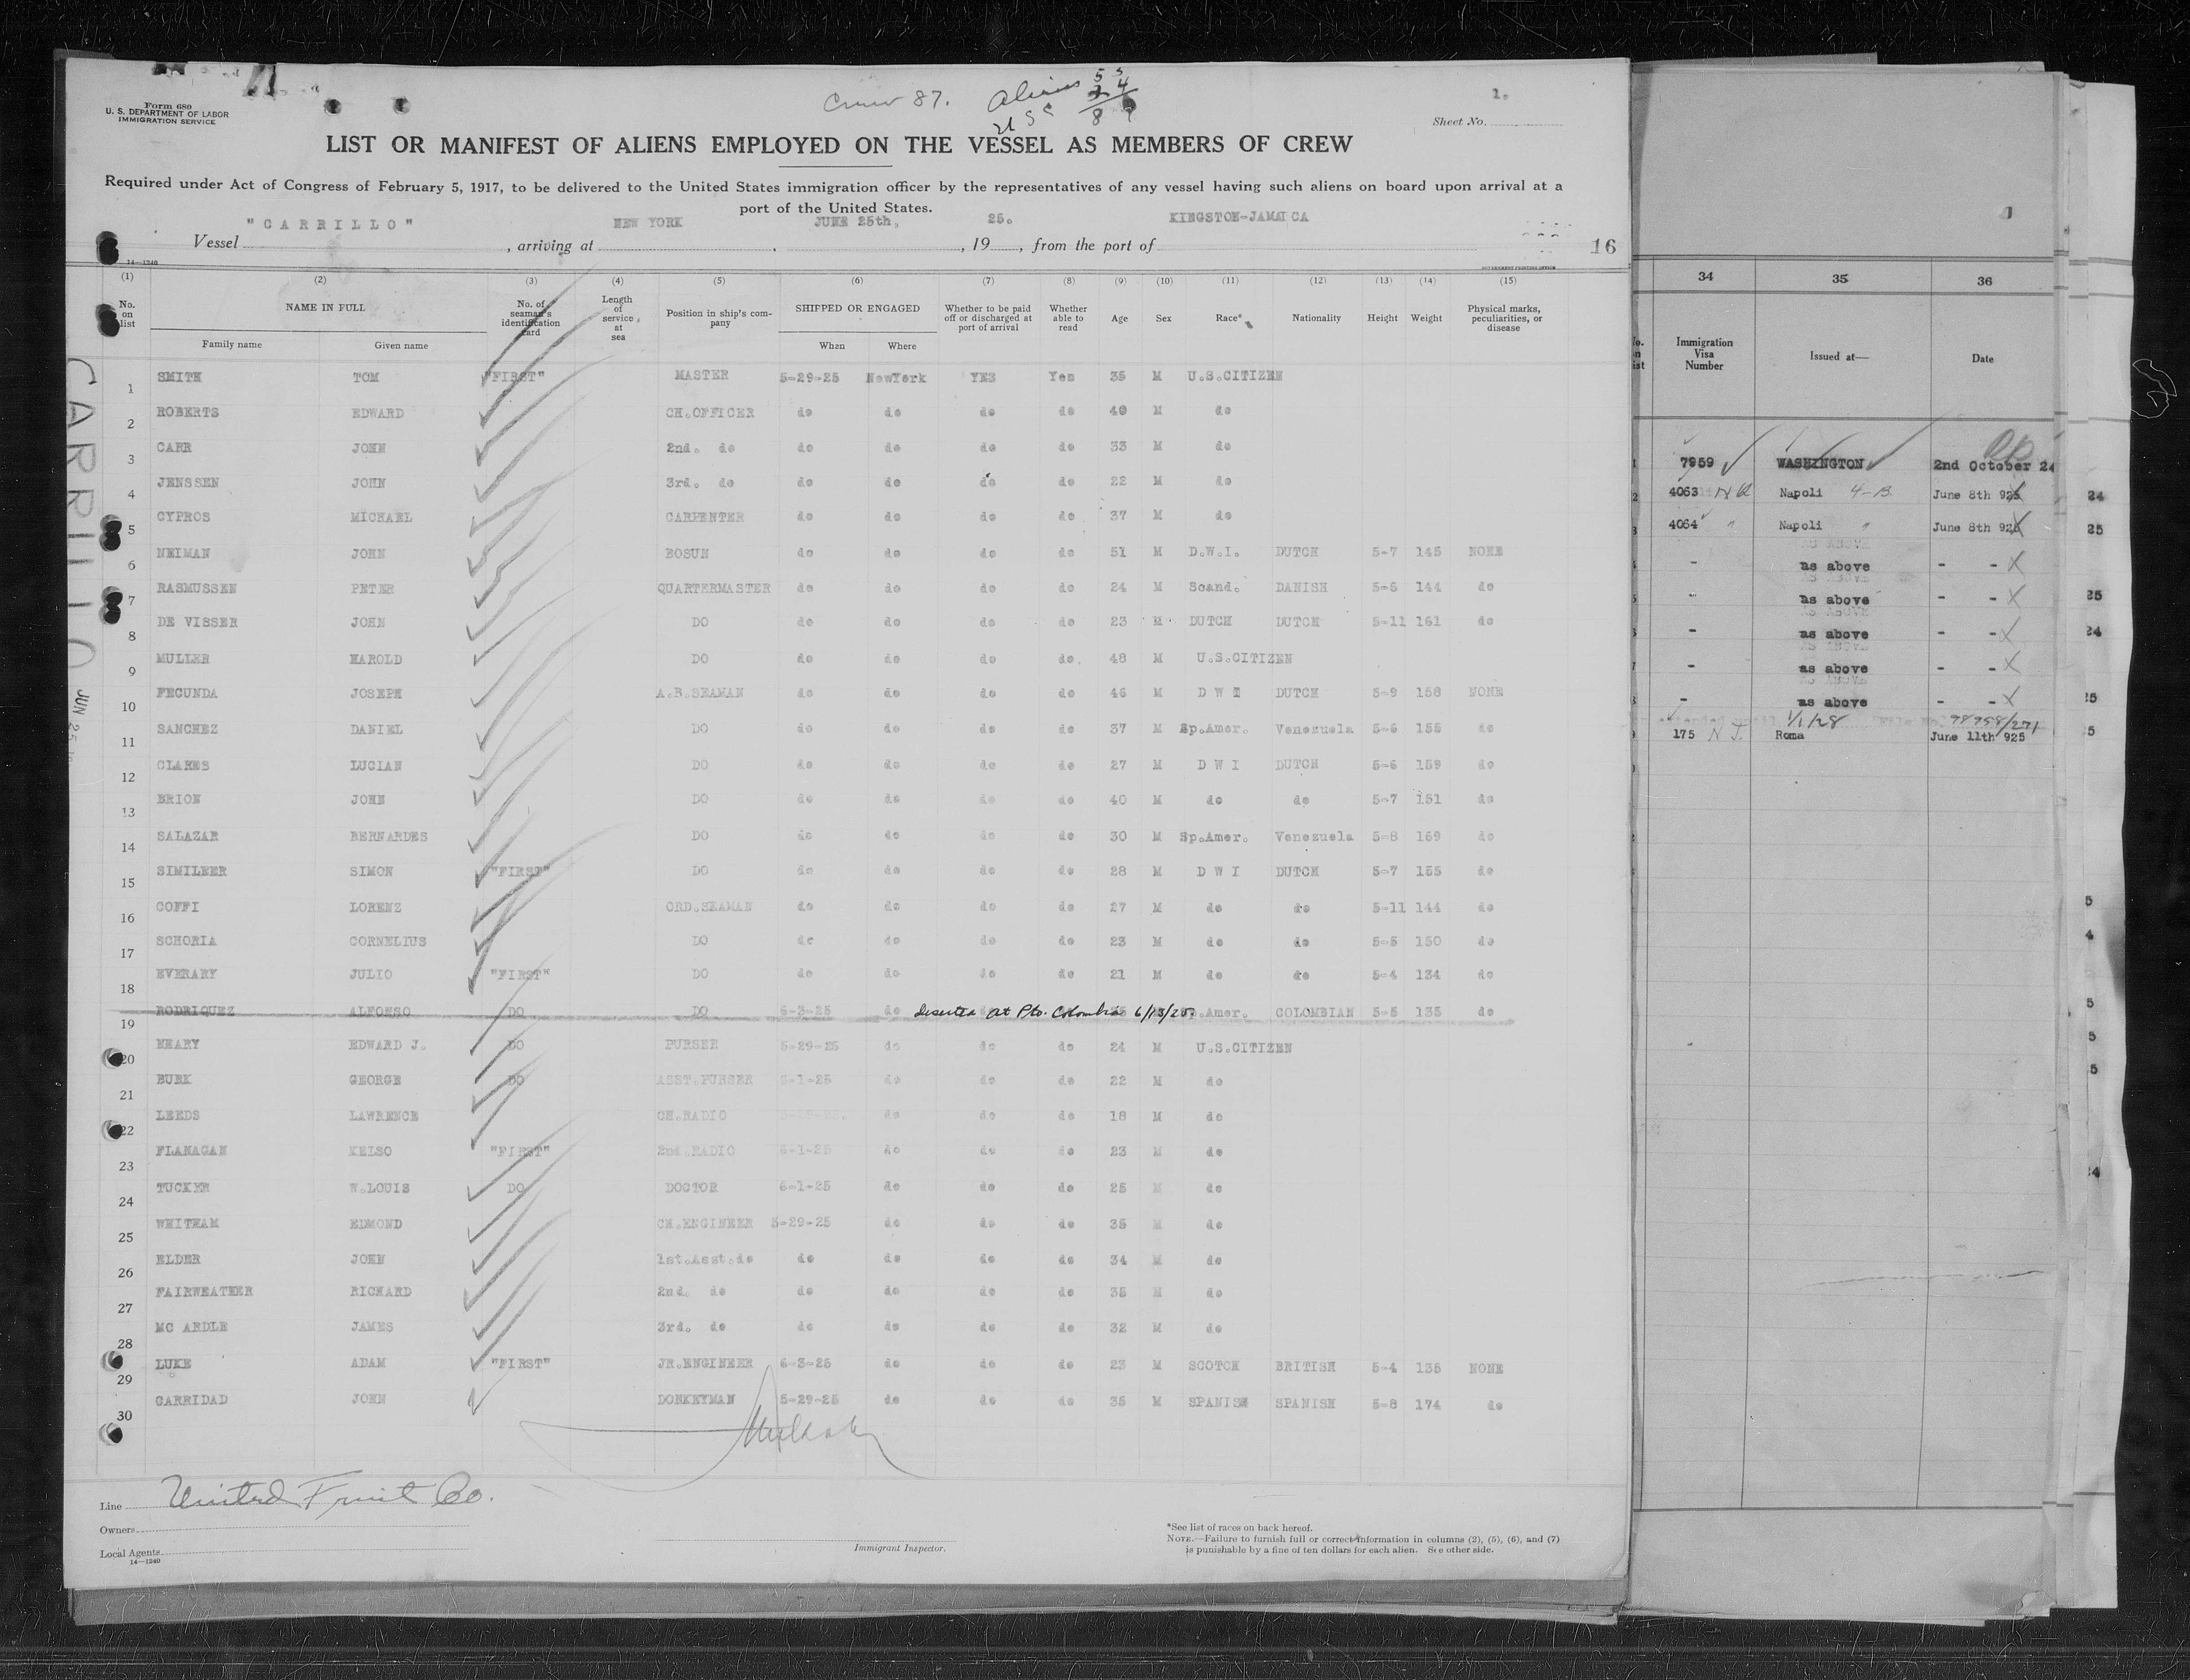 Form 680
U. S. DEPARTMENT OF LABOR
IMMIGRATION SERVICE
Crew 87. Aliens 54
USC
1.
Sheet No.
LIST OR MANIFEST OF ALIENS EMPLOYED ON THE VESSEL AS MEMBERS OF CREW
Required under Act of Congress of February 5, 1917, to be delivered to the United States immigration officer by the representatives of any vessel having such aliens on board upon arrival at a
port of the United States.
Vessel "CARRILLO", arriving at NEW YORK, JUNE 25th, 1925., from the port of KINGSTON-JAMAICA
16
14—1240
GOVERNMENT PRINTING OFFICE
(1) (2) (3) (4) (5) (6) (7) (8) (9) (10) (11) (12) (13) (14) (15)
No. on list NAME IN FULL No. of seaman's identification card Length of service at sea Position in ship's company SHIPPED OR ENGAGED Whether to be paid off or discharged at port of arrival Whether able to read Age Sex Race* Nationality Height Weight Physical marks, peculiarities, or disease
Family name Given name When Where
1 SMITH TOM "FIRST" MASTER 5-29-25 NewYork YES Yes 35 M U.S.CITIZEN
2 ROBERTS EDWARD CH.OFFICER do do do do 40 M do
3 CARR JOHN 2nd. do do do do do 33 M do
4 JENSSEN JOHN 3rd. do do do do do 22 M do
5 CYPROS MICHAEL CARPENTER do do do do 37 M do
6 NEIMAN JOHN BOSUN do do do do 51 M D.W.I. DUTCH 5-7 145 NONE
7 RASMUSSEN PETER QUARTERMASTER do do do do 24 M Scand. DANISH 5-6 144 do
8 DE VISSER JOHN DO do do do do 23 M DUTCH DUTCH 5-11 161 do
9 MULLER HAROLD DO do do do do. 48 M U.S.CITIZEN
10 FECUNDA JOSEPH A.B.SEAMAN do do do do 46 M D W I DUTCH 5-9 158 NONE
11 SANCHEZ DANIEL DO do do do do 37 M Sp.Amer. Venezuela 5-6 155 do
12 CLARES LUCIAN DO do do do do 27 M D W I DUTCH 5-6 159 do
13 BRION JOHN DO do do do do 40 M do do 5-7 151 do
14 SALAZAR BERNARDES DO do do do do 30 M Sp.Amer. Venezuela 5-8 169 do
15 SIMILEER SIMON "FIRST" DO do do do do 28 M D W I DUTCH 5-7 155 do
16 COFFI LORENZ ORD.SEAMAN do do do do 27 M do do 5-11 144 do
17 SCHORIA CORNELIUS DO do do do do 23 M do do 5-5 150 do
18 EVERARY JULIO "FIRST" DO do do do do 21 M do do 5-4 134 do
19 RODRIQUEZ ALFONSO DO DO 6-3-25 do Deserted at Pto. Colombia 6/13/25. Amer. COLOMBIAN 5-5 135 do
20 KEARY EDWARD J. DO PURSER 5-29-25 do do do 24 M U.S.CITIZEN
21 BURK GEORGE DO ASST.PURSER 6-1-25 do do do 22 M do
22 LEEDS LAWRENCE CH.RADIO do do do 18 M do
23 FLANAGAN KELSO "FIRST" 2nd.RADIO 6-1-25 do do do 23 M do
24 TUCKER W.LOUIS DO DOCTOR 6-1-25 do do do 25 M do
25 WHITHAM EDMOND CH.ENGINEER 5-29-25 do do do 35 M do
26 ELDER JOHN 1st.Asst.do do do do do 34 M do
27 FAIRWEATHER RICHARD 2nd. do do do do do 35 M do
28 MC ARDLE JAMES 3rd. do do do do do 32 M do
29 LUKE ADAM "FIRST" JR.ENGINEER 6-3-25 do do do 23 M SCOTCH BRITISH 5-4 135 NONE
30 CARRIDAD JOHN DONKEYMAN 5-29-25 do do do 35 M SPANISH SPANISH 5-8 174 do
Line United Fruit Co.
Owners
Local Agents
14—1240
Immigrant Inspector.
*See list of races on back hereof.
NOTE.—Failure to furnish full or correct information in columns (2), (5), (6), and (7)
is punishable by a fine of ten dollars for each alien. See other side.
CARRILLO JUN 25
34 35 36
Immigration Visa Number Issued at— Date
7959 WASHINGTON 2nd October 24
4063 Napoli 4-B June 8th 925
4064 " Napoli " June 8th 925
- as above - -
- as above - -
- as above - -
- as above - -
- as above - -
1/1/28 File No. 98758/271
175 N J. Roma June 11th 925
24
25
25
24
25
5
5
4
5
5
5
24